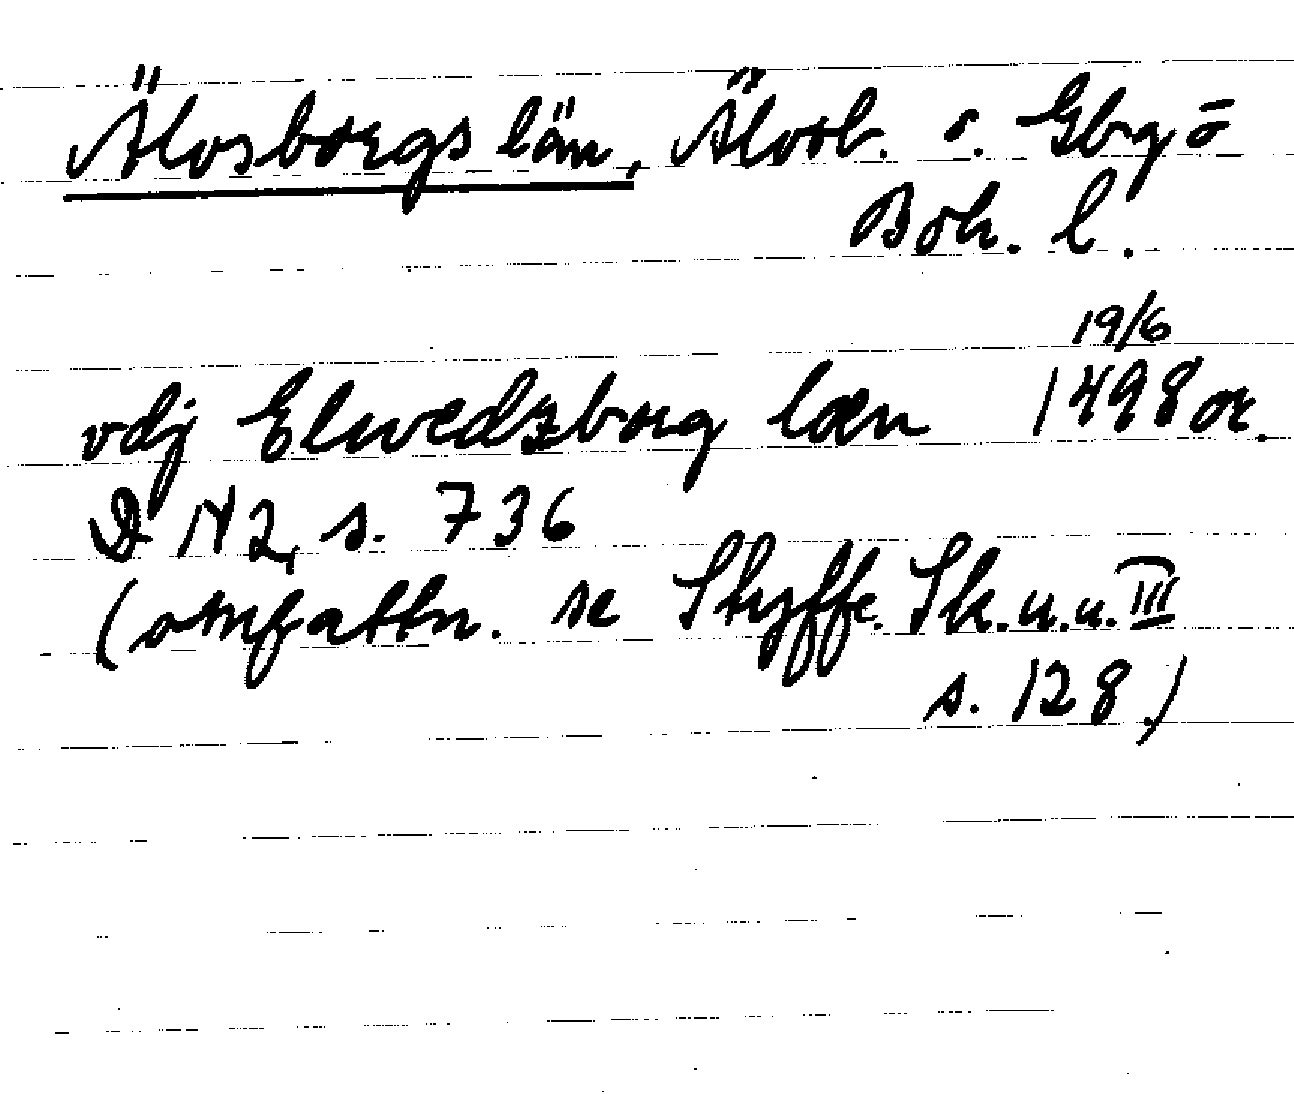 Älvsborgs län, Älvsb. o. Gbg o
Boh. l.
19/6
vdj Elwedzborg læn 1498 or.
DN 2, s. 736
(omfattn. se Styffe. Sk. u. u. III
s. 128.)